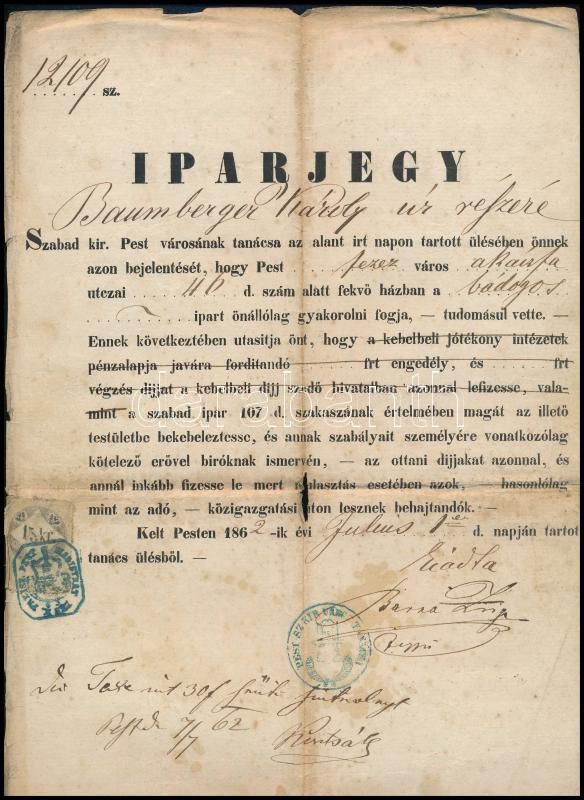 12109 sz.
IPARJEGY
Baumberger Károly úr részére
Szabad kir. Pest városának tanácsa az alant irt napon tartott ülésében önnek
azon bejelentését, hogy Pest terez város akácfa
utczai 46 d. szám alatt fekvö házban a bádogos
ipart önállólag gyakorolni fogja, — tudomásul vette. —
Ennek következtében utasitja önt, hogy a kebelbeli jótékony intézetek
pénzalapja javára forditandó frt engedély, és frt
végzés dijjat a kebelbeli dijj szedö hivatalban azonnal lefizesse, vala-
mint a szabad ipar 107 d. szakaszának értelmében magát az illetö
testületbe bekebeleztesse, és annak szabályait személyére vonatkozólag
kötelezö erövel biróknak ismervén, — az ottani dijjakat azonnal, és
annál inkább fizesse le mert mulasztás esetében azok, — hasonlólag
mint az adó, — közigazgatási úton lesznek behajtandók. —
Kelt Pesten 1862-ik évi Julius 1 d. napján tartot
tanács ülésböl. —
Kiadta
15 kr.
PEST SZ. KIR. VÁROS TANÁCSA
Die Taxe mit 30 f
Pest d. 7/7 62
darabanth